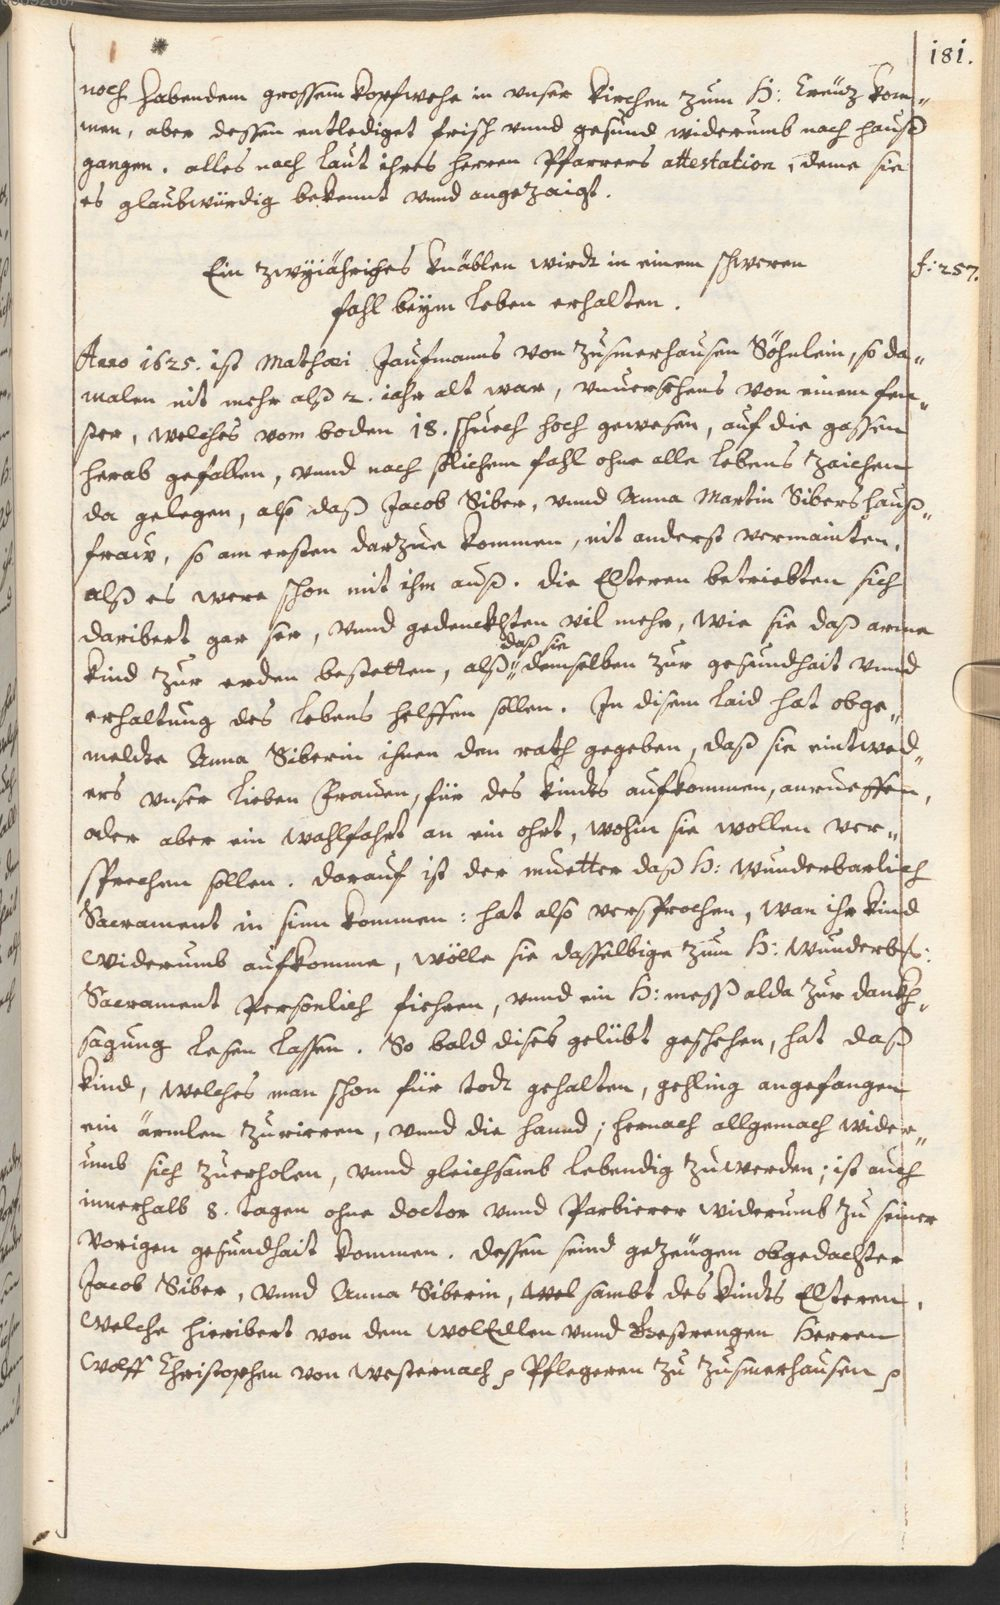 181.
noch habendem grossem kopfwehe in vnser kirchen zum H: Creütz kom„
men, aber dessen entlediget frisch vnnd gesund widerumb nach hauß
gangen. alles nach laut ihres herren Pfarrers attestation, deme sie
es glaubwürdig bekennt vnnd angezaigt.
Ein zwÿiähriges knäblen wirdt in einem schweren
f: 257.
fahl beÿm leben erhalten.
Anno 1625. ist Mathæi Jaufmanns von Zusmerhausen Söhnlein, so da„
malen nit mehr alß 2. iahr alt war, vnuersehens von einem fen„
ster, welches vom boden 18. schuech hoch gewesen, auf die gassen
herab gefallen, vnnd nach solichem fahl ohne alle lebens zaichen
da gelegen, also daß Jacob Siber, vnnd Anna Martin Sibers hauß„
fraw, so am ersten darzue kommen, nit anderst vermainten,
alß es were schon mit ihm auß. die Elteren betriebten sich
daribert gar ser, vnnd gedenckhten vil mehr, wie sie daß arme
daß sie
kind zur erden bestetten, alß demselben zur gesundhait vnnd
erhaltung des lebens helffen sollen. In disem laid hat obge„
melte Anna Siberin ihnen den rath gegeben, daß sie eintwed„
ers vnser lieben Frauen, für des kindts aufkommen, anrueffen,
oder aber ein wahlfahrt an ein ohrt, wohin sie wollen ver„
sprechen sollen. darauf ist der muetter daß H: Wunderbarlich
Sacrament in sinn kommen: hat also versprochen, wan ihr kind
widerumb aufkomme, wölle sie dasselbige zum H: Wunderb:
Sacrament persönlich fiehren, vnnd ein H: mess alda zur danckh„
sagung lesen lassen. So bald dises gelübt geschehen, hat daß
kind, welches man schon für todt gehalten, gehling angefangen
ein ärmlen zurieren, vnnd die hannd; hernach allgemach wider„
umb sich zuerholen, vnnd gleichsamb lebendig zuwerden; ist auch
innerhalb 8. tagen ohne doctor vnnd Parbierer widerumb zu seiner
vorigen gesundhait kommen. dessen seind gezeügen obgedachter
Jacob Siber, vnnd Anna Siberin, sambt des kindts Elteren,
welche hieribert von dem wolEdlen vnnd Gestrengen Herren
Wolff Christophen von Westernach Pflegeren zu Zusmerhausen